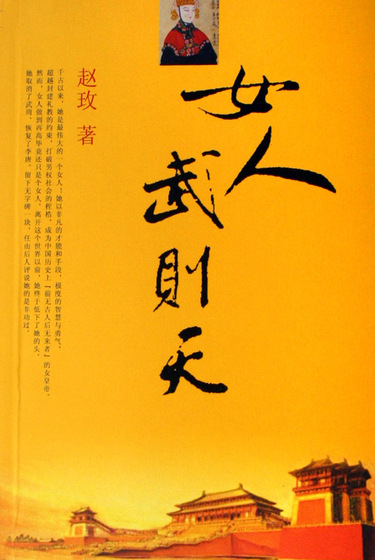 女人
武則天
赵玫 著
千古以来，她是最伟大的一个女人！她以非凡的才能和手段，极度的智慧与勇气，
超越封建礼教的约束，打破男权社会的桎梏，成为中国历史上『前无古人后无来者』的女皇帝。
然而，女人做到再高毕竟还只是个女人，离开这个世界以前，她终于低下了她的头，
她取消了武周，恢复了李唐，留下无字碑一块，任由后人评说她的是非功过。